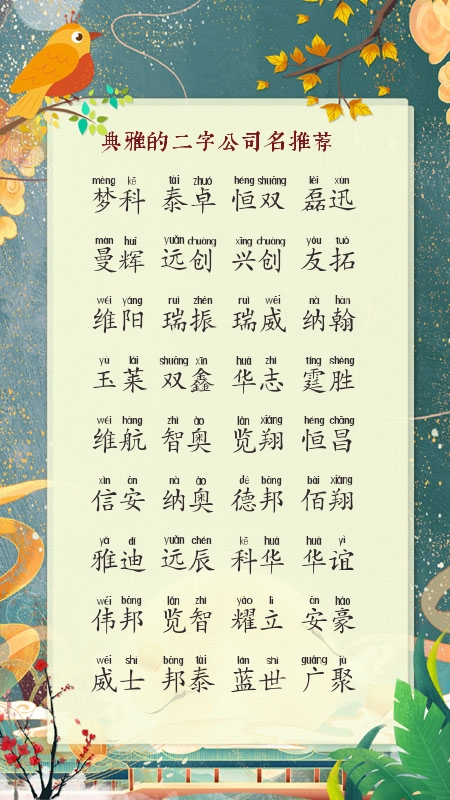 典雅的二字公司名推荐
mèng kē tài zhuó héng shuāng lěi xùn
梦科 泰卓 恒双 磊迅
màn huī yuǎn chuàng xīng chuàng yǒu tuò
曼辉 远创 兴创 友拓
wéi yáng ruì zhèn ruì wēi nà hàn
维阳 瑞振 瑞威 纳翰
yù lái shuāng xīn huá zhì tíng shèng
玉莱 双鑫 华志 霆胜
wéi háng zhì ào lǎn xiáng héng chāng
维航 智奥 览翔 恒昌
xìn ān nà ào dé bāng bǎi xiáng
信安 纳奥 德邦 佰翔
yǎ dí yuǎn chén kē huá huá yì
雅迪 远辰 科华 华谊
wěi bāng lǎn zhì yào lì ān háo
伟邦 览智 耀立 安豪
wēi shì bāng tài lán shì guǎng jù
威士 邦泰 蓝世 广聚